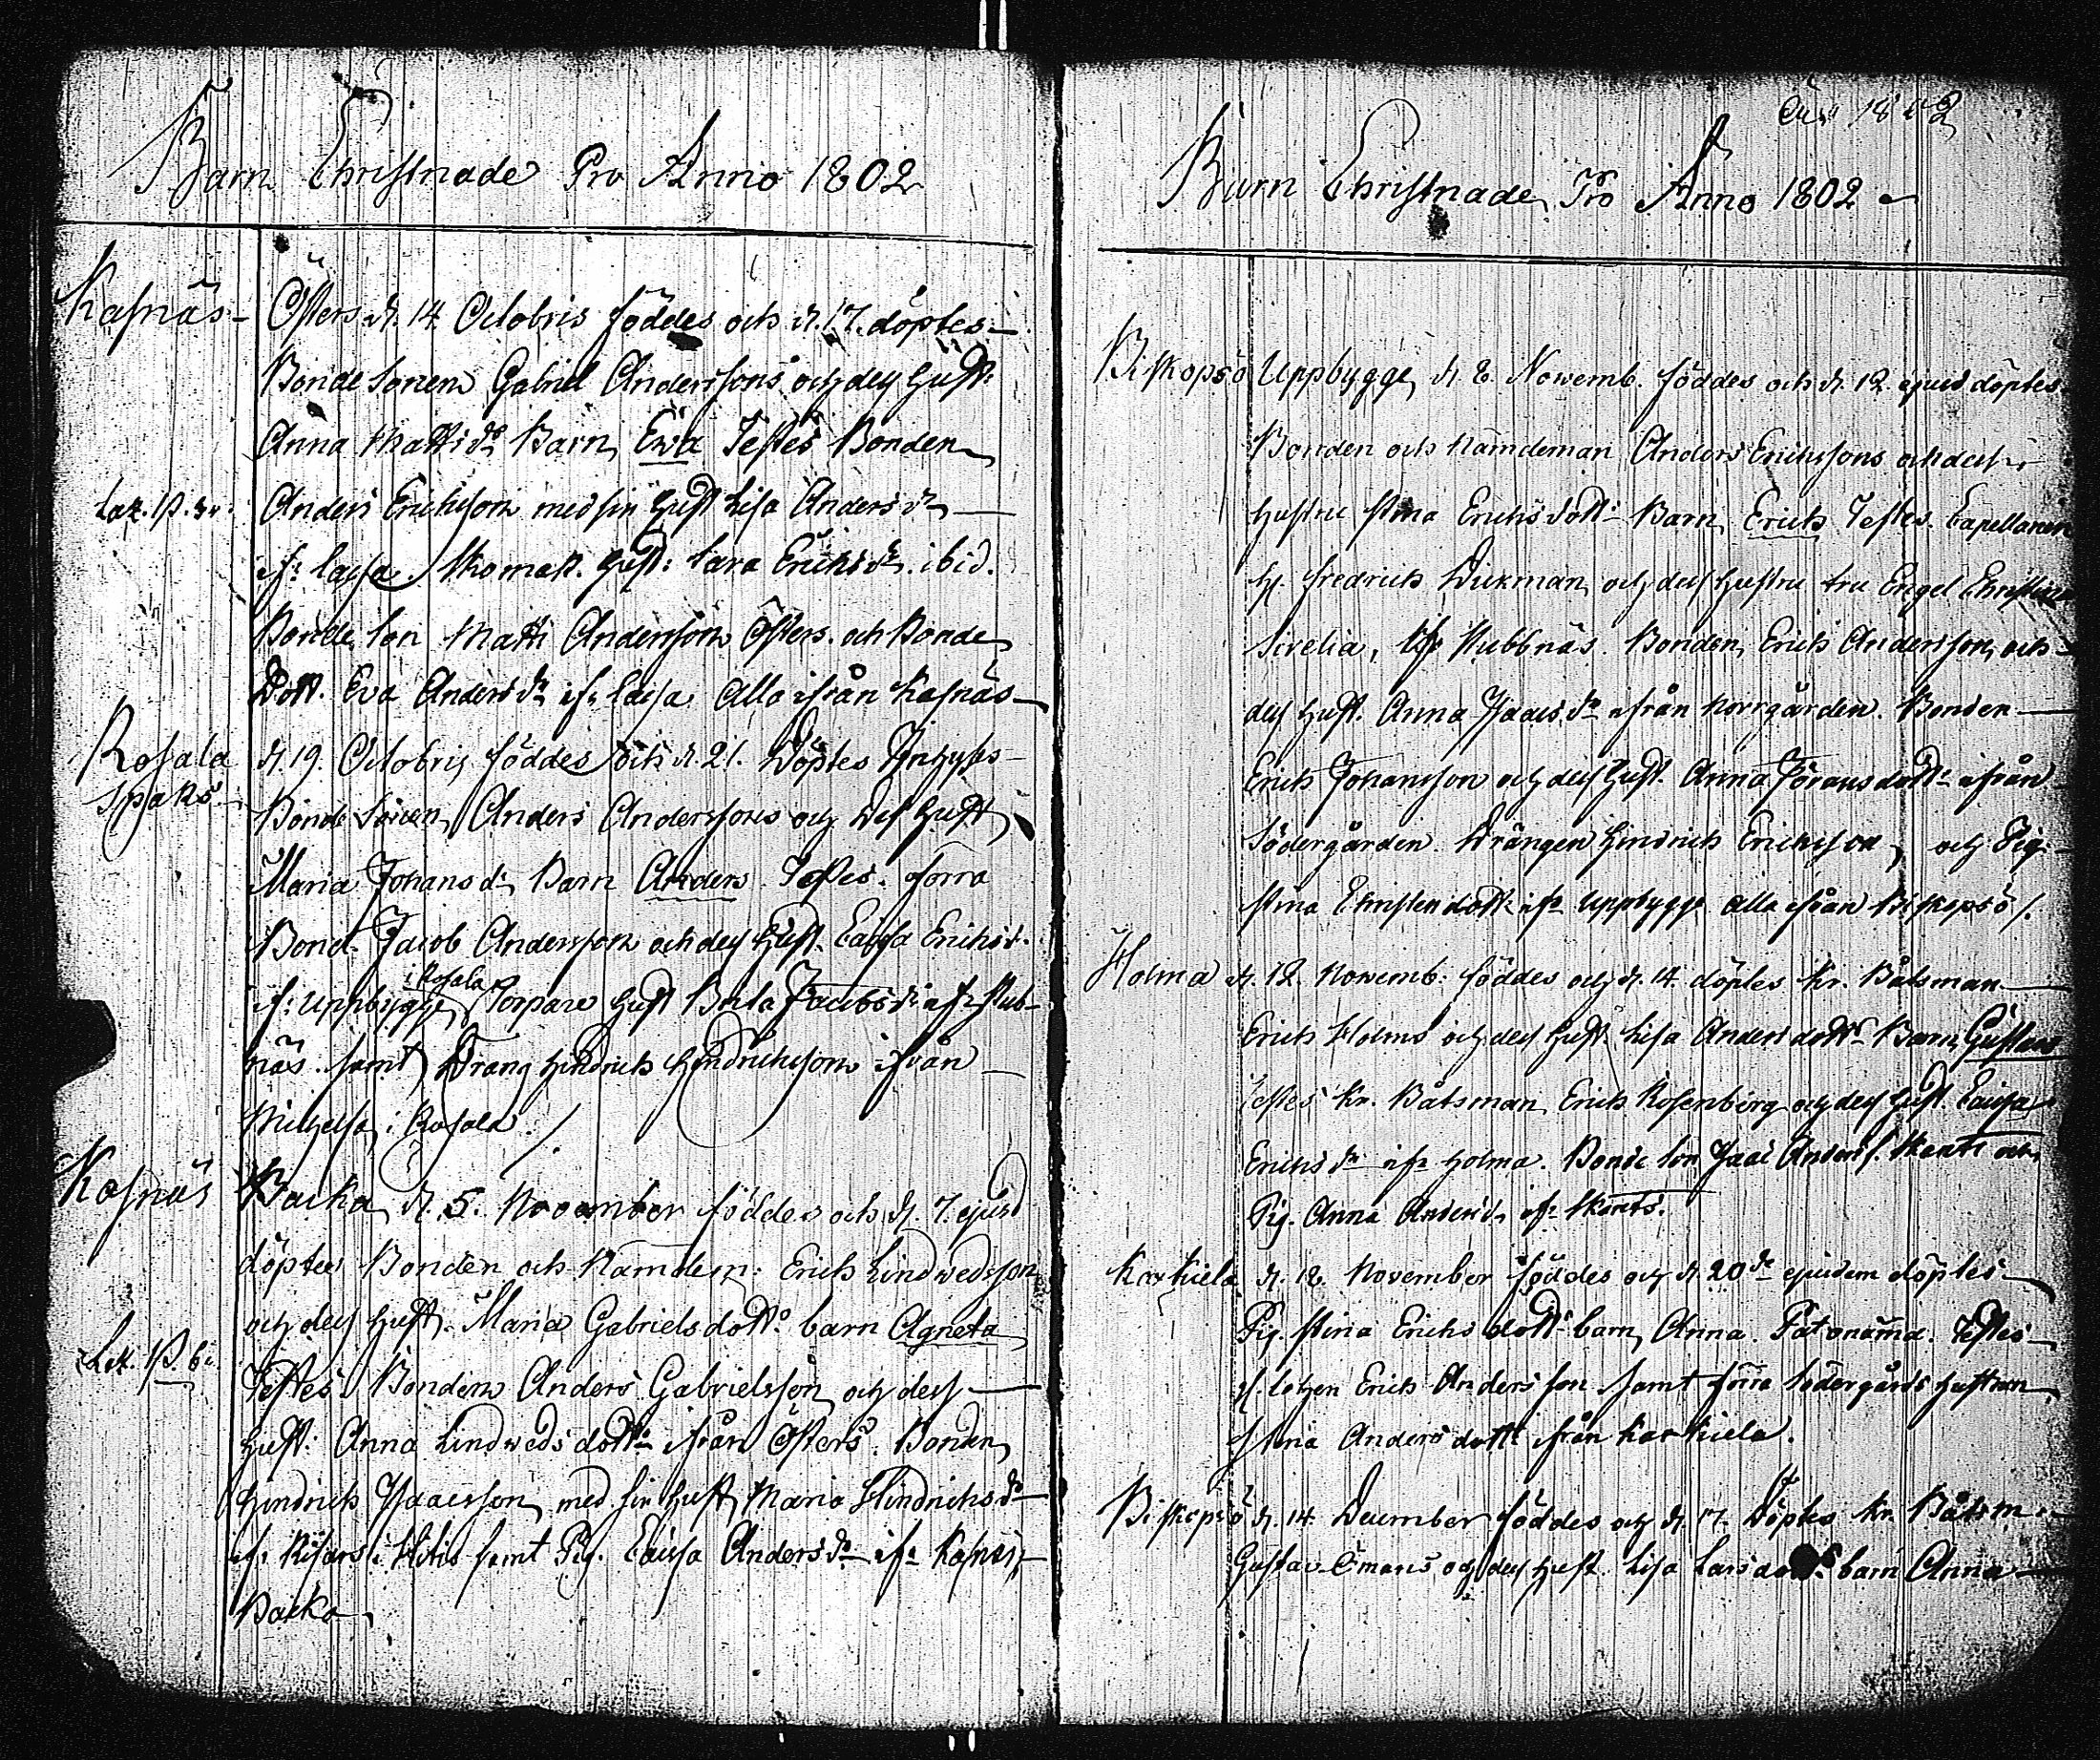 Barn Christnade Pro Anno 1802
Kasnäs Östers d. 14 Octobris föddes och d. 17. döptes
Bonde Sonen Gabriel Anderssons och dess Hust:
Anna Matts dr Barn Ewa Testes Bonden
Anders Ericksson med sin Hust Lisa Anders dr
ifr: Hust: Sara Erichs dr. ibid.
Bonde Son Matti Andersson Östers. och Bonde
Dott. Eva Anders dr ifr. Alla ifrån Kasnäs
Rosala
Spaks
d. 19. Octobris föddes och d. 21. Döptes Inhyses
Bonde Sonen Anders Anderssons och Dess Hust
Maria Johans dr Barn Anders Testes. förra
Bond. Jacob Andersson och dess Hust. Caisa Erichs d.
if: Uppbygge i Rosala Torpare Hust Brita Jacobs dr ifr Stub-
näs. samt Dräng Hindrich Hindrichsson ifrån
i Rosala.
Kasnäs Backa d. 5. November föddes och d. 7. ejusd
döptes Bonden och Nämdem: Erich Lindwedsson
och dess Hust. Maria Gabrielsdottr barn Agneta
Testes Bonden Anders Gabrielsson och dess
Hust: Anna Lindweds dottr ifrån Östers. Bonden
Hindrich Isaacsson med sin Hust Maria Hindrichs dr
if: i Hitis samt Pig. Caisa Anders dr ifr Kasnäs
Backa
1802
Barn Christnade Pro Anno 1802
Biskopsö Uppbygge d. 8. Novemb. föddes och d. 12 ejusd döptes
Bonden och Nämdeman Anders Erichssons och dess
hustru Stina Erichsdottr Barn Erich Testes. Capellanen
H. Fredrich Dickman och dess hustru fru Engel Christina
Sirelia, ifr Stubbnäs. Bonden Erich Andersson och
dess Hust. Anna Isaacs dr ifrån Norrgården. Bonden
Erich Johansson och dess Hust. Anna Jöransdottr ifrån
Södergården Drängen Hindrich Erichsson och Pig.
Stina Christersdottr ifr Uppbygge alla ifrån Biskopsö.
Holma d. 12. Novemb: föddes och d. 14. döptes Kr. Båtsman
Erich Holms och dess Hust. Lisa Andersdottr Barn Gustava
Testes Kr. Båtsman Erich Rosenberg och dess Hust. Caisa
Erichs dr ifr Holma. Bonde Son Isac Anders s. och
Pig. Anna Anders dr ifr
Karkiela d. 18. November föddes och d. 20de ejusdem döptes
Pig. Stina Erichs dottr barn Anna. Testes
Erich Andersson samt förra Södergårds hustrun
Stina Andersdottr ifrån Karkiela.
Biskopsö d. 14. December föddes och d. 17. Döptes Kr. Båtsm
Gustav och dess Hust. Lisa Larsdottrs barn Anna